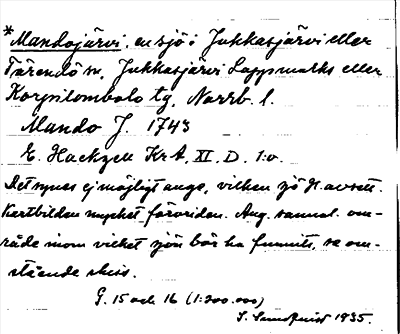 *Mandojärvi, en sjö i Jukkasjärvi eller
Tärendö sn, Jukkasjärvi Lappmarks eller
Korpilombolo tg, Norrb. l.
Mando J. 1743
E. Hackzell KrA, XI. D. 1:o.
Det synes ej möjligt ange, vilken sjö H. avsett.
Kartbilden mycket förvriden. Ang. sannol. om-
råde inom vilket sjön bör ha funnits, se om-
stående skiss.
G. 15 och 16 (1:200.000)
S. Sundquist 1935.